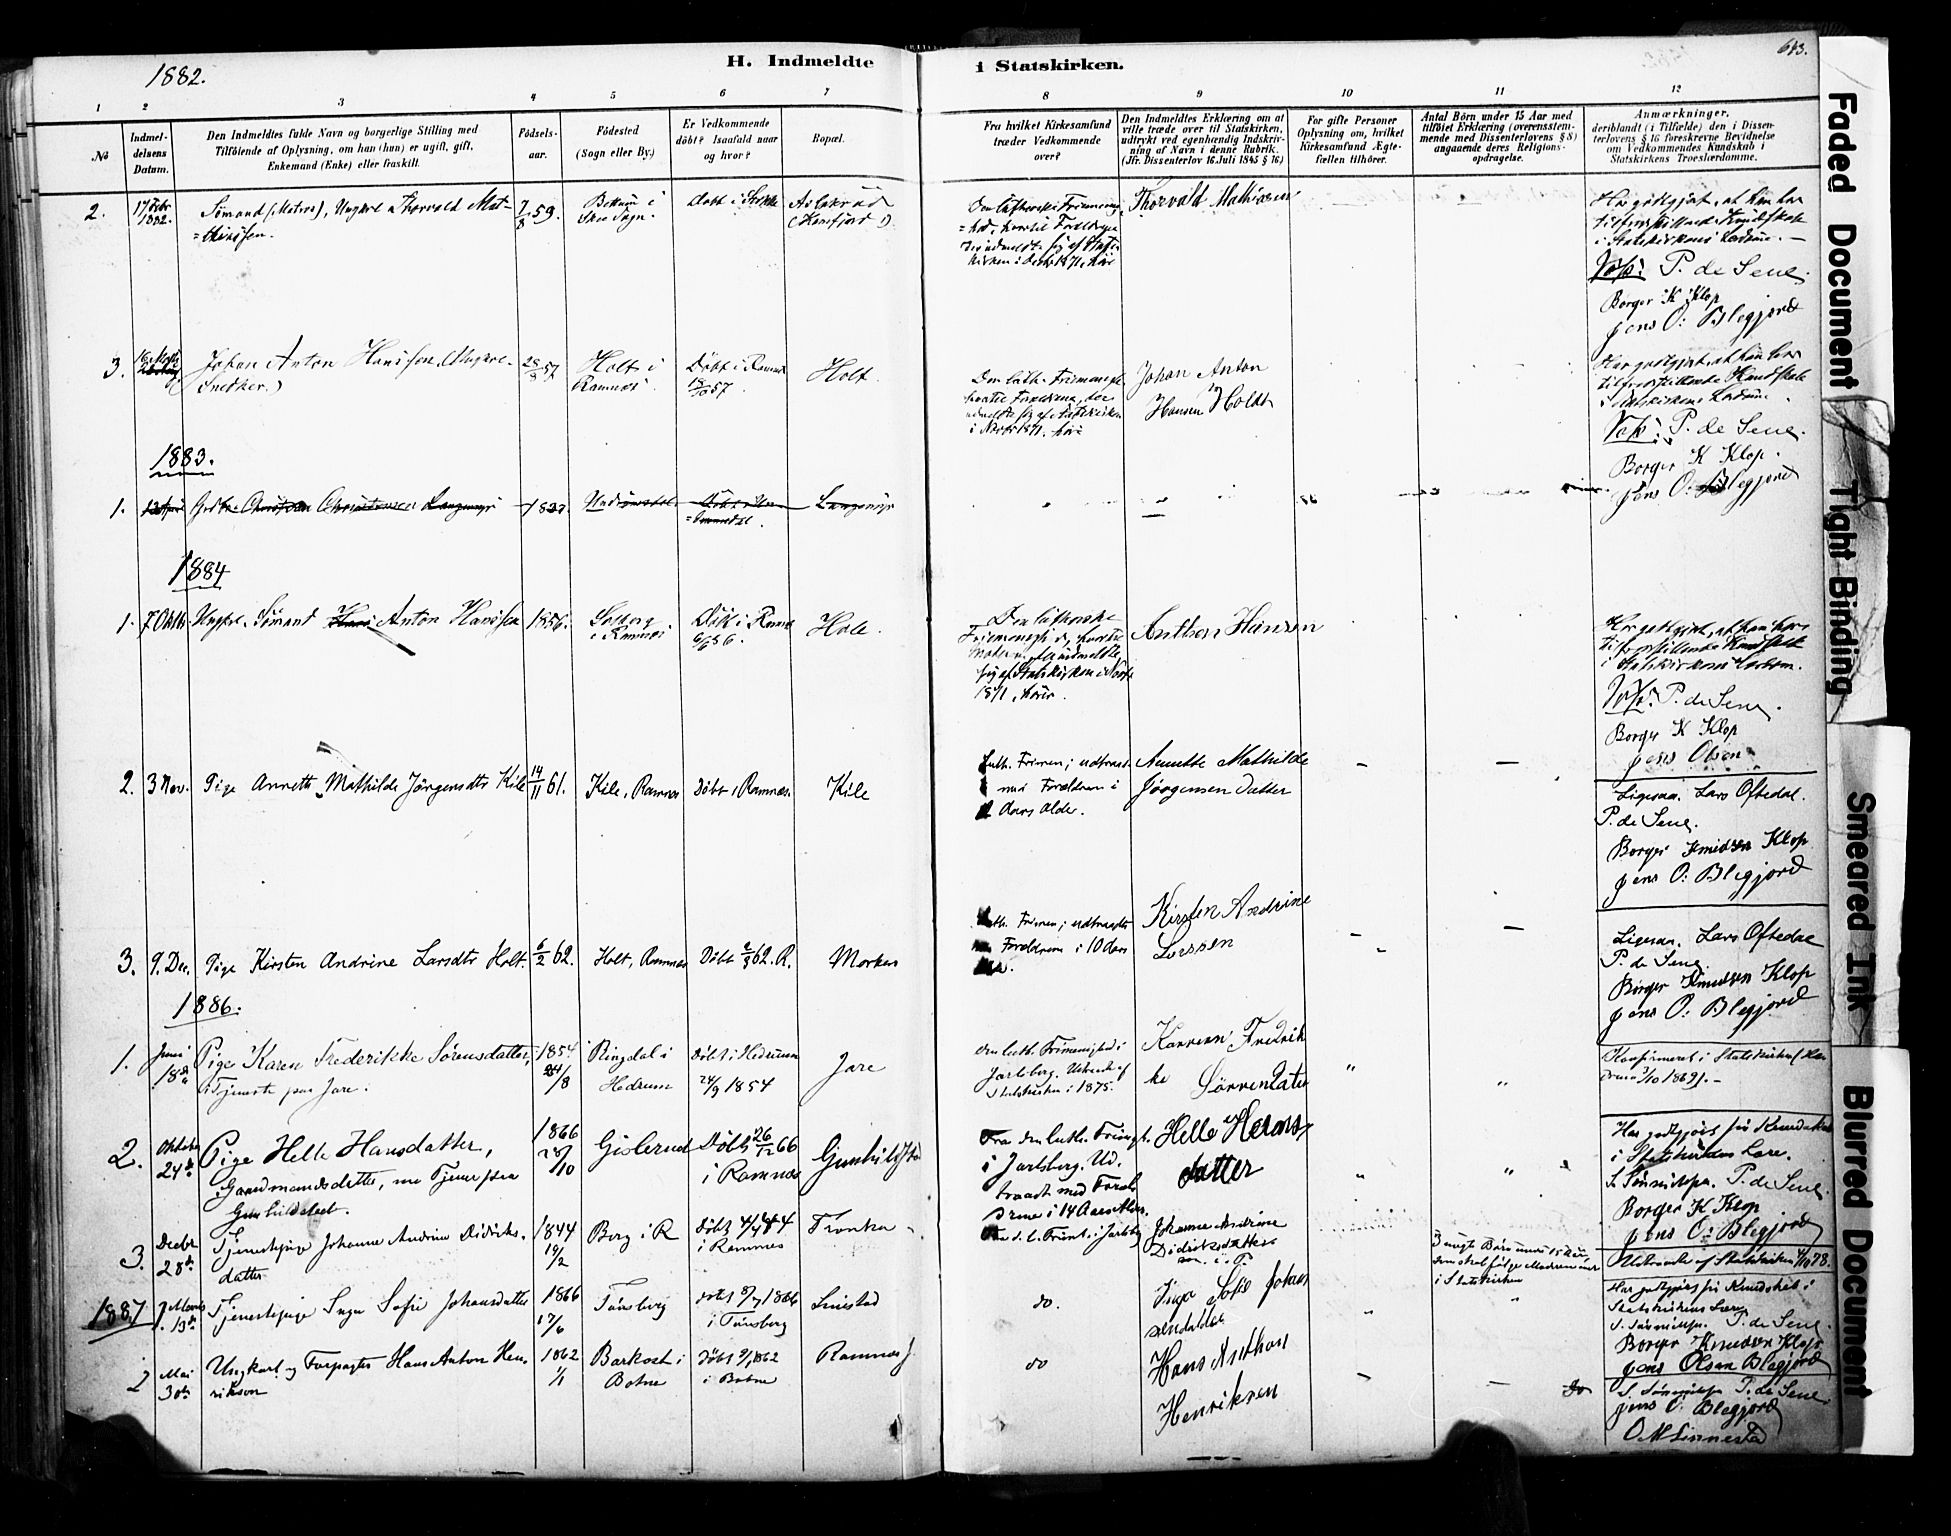 1882.
H. Indmeldte i Statskirken.
643.
1 2 3 4 5 6 7 8 9 10 11 12
No
Indmel-
delsens
Datum.
Den Indmeldtes fulde Navn og borgerlige Stilling med
Tilföiende af Oplysning, om han (hun) er ugift, gift,
Enkemand (Enke) eller fraskilt.
Födsels-
aar.
Födested
(Sogn eller By.)
Er Vedkommende
döbt? Isaafald naar
og hvor?
Bopæl.
Fra hvilket Kirkesamfund
træder Vedkommende
over?
Den Indmeldtes Erklæring om at
ville træde over til Statskirken,
udtrykt ved egenhændig Indskriv-
ning af Navn i denne Rubrik.
(Jfr. Dissenterlov 16 Juli 1845 § 16)
For gifte Personer
Oplysning om, hvilket
Kirkesamfund Ægte-
fællen tilhörer.
Antal Börn under 15 Aar med
tilföiet Erklæring (overensstem-
mende med Dissenterlovens § 8)
angaaende deres Religions-
opdragelse.
Anmærkninger,
deriblandt (i Tilfælde) den i Dissen-
terlovens § 16 foreskrevne Bevidnelse
om Vedkommendes Kundskab i
Statskirkens Troeslærdomme.
2. 17 Febr 1882. Sömand (Matros), Ungkarl Thorvald Mat-
=thiassen.
7/8 59.
i
Sogn.
Döbt i
Thorvald Mathiasen
Har godtgjort, at han har
tilfredsstillende Kundskab
i Statskirkens Lærdomme. —
P. de Seue
Borger K Klop
Jens O: Blegjord
3. Johan Anton Hanssen, (Ungkarl
Snedker.)
28/8 57
Holt i
Ramnæs
Döbt i Ramnæs
18/10 57
Holt
Den luth. Frimenigh.
Johan Anton
Hansen Holdt
Har godtgjort, at han har
tilfredsstillende Kundskab
i Statskirkens Lærdomme.
P. de Seue.
Borger K Klop.
Jens O: Blegjord
1883.
1. Christensen Langmyr
Langmyr
1884
1. 7 Oktbr Ungkarl, Sömand Hans Anton Hanssen
1856.
Solberg
i Ramnæs
Döbt i Ramnæs
Holt.
Den lutherske
Frimenighed, hvortil
sig af Statskirken i
1871, hörer.
Anthon Hansen
Har godtgjort, at han har
tilfredsstillende Kundskab
i Statskirkens Lærdom.
P. de Seue.
Borger K Klop
Jens Olsen
2. 3 Nov. Pige Annette Mathilde Jörgensdtr Kile
14/11 61.
Kile, Ramnæs
Döbt i Ramnæs.
Kile
Luth. Frimen; udtraadt
med Forældrene i
Aars Alder.
Annette Mathilde
Jörgensen Datter
Ligesaa. Lars Oftedal.
P. de Seue.
Borger Knudsen Klop
Jens O: Blegjord
3. 9. Dec. Pige Kirsten Andrine Larsdtr Holt.
6/2 62.
Holt, Ramnæs
Döbt 2/3 62. R.
Morken
Luth. Frimen; udtraadt
Forældrene i 10 Aars
Kirsten Andrine
Larsen
Ligesaa. Lars Oftedal
P. de Seue.
Borger Knudsen Klop
Jens O: Blegjord
1886.
1. Juni 18de Pige Karen Frederikke Sörensdatter,
i Tjeneste paa Jare.
1854
24/8
Ringdal i
Hedrum
Döbt i Hedrum
24/9 1854
Jare
Den luth. Frimenighed i
Jarlsberg. Udtraadt af
Statskirken i 1875.
Karrenn Fredrik
ke Sörrendater
Konfirmeret i Statskirken (Hed
rum 3/10 1869). —
2. Oktober 24de Pige Helle Hansdatter,
Gaardmandsdatter, nu Tjener paa
Gunhildstad.
1866
28/10
Gislerud
Döbt 26/12 66
i Ramnæs
Gunhildstad
Fra den luth. Frimgh.
i Jarlsberg. Ud-
traadt med Foræl-
drene i 14 Aars Alder.
Helle Hans
datter
Har godtgjort sin Kundskab
i Statskirkens Lære.
P. de Seue.
Borger K Klop
Jens O: Blegjord
3. Decbr 28de Tjenestepige Johanne Andrine Didriks-
datter
1844
19/2
Berg i R
Döbt 4/4 1844
i Ramnæs
Johanne Andrine
Didriksdatter
m. i. P.
3 uægte Börn under 15 Aar,
som skal fölge Moderen ind
i Statskirken
Udtraadt af Statskirken 78.
1887
1. Marts 13de Tjenestepige Inga Sofie Johansdatter
1866
17/6
Tönsberg
döbt 8/7 1866
i Tönsberg
Linestad
do.
Inga Sofie Johan
sendatter
Har godtgjort sin Kundskab i
Statskirkens Lære
P. de Seue.
Borger Knudsen Klop
Jens Olsen Blegjord
2 Mai 30te Ungkarl og Forpagter Hans Anton Hen-
riksen
1862
1/1
Barkost i
Botne
Döbt 9/ 1862
i Botne
Ramnæs
do
Hans Anthon
Henriksen
do
P. de Seue.
Jens O: Blegjord
O M Linnestad
Faded Document
Tight Binding
Smeared Ink
Blurred Document